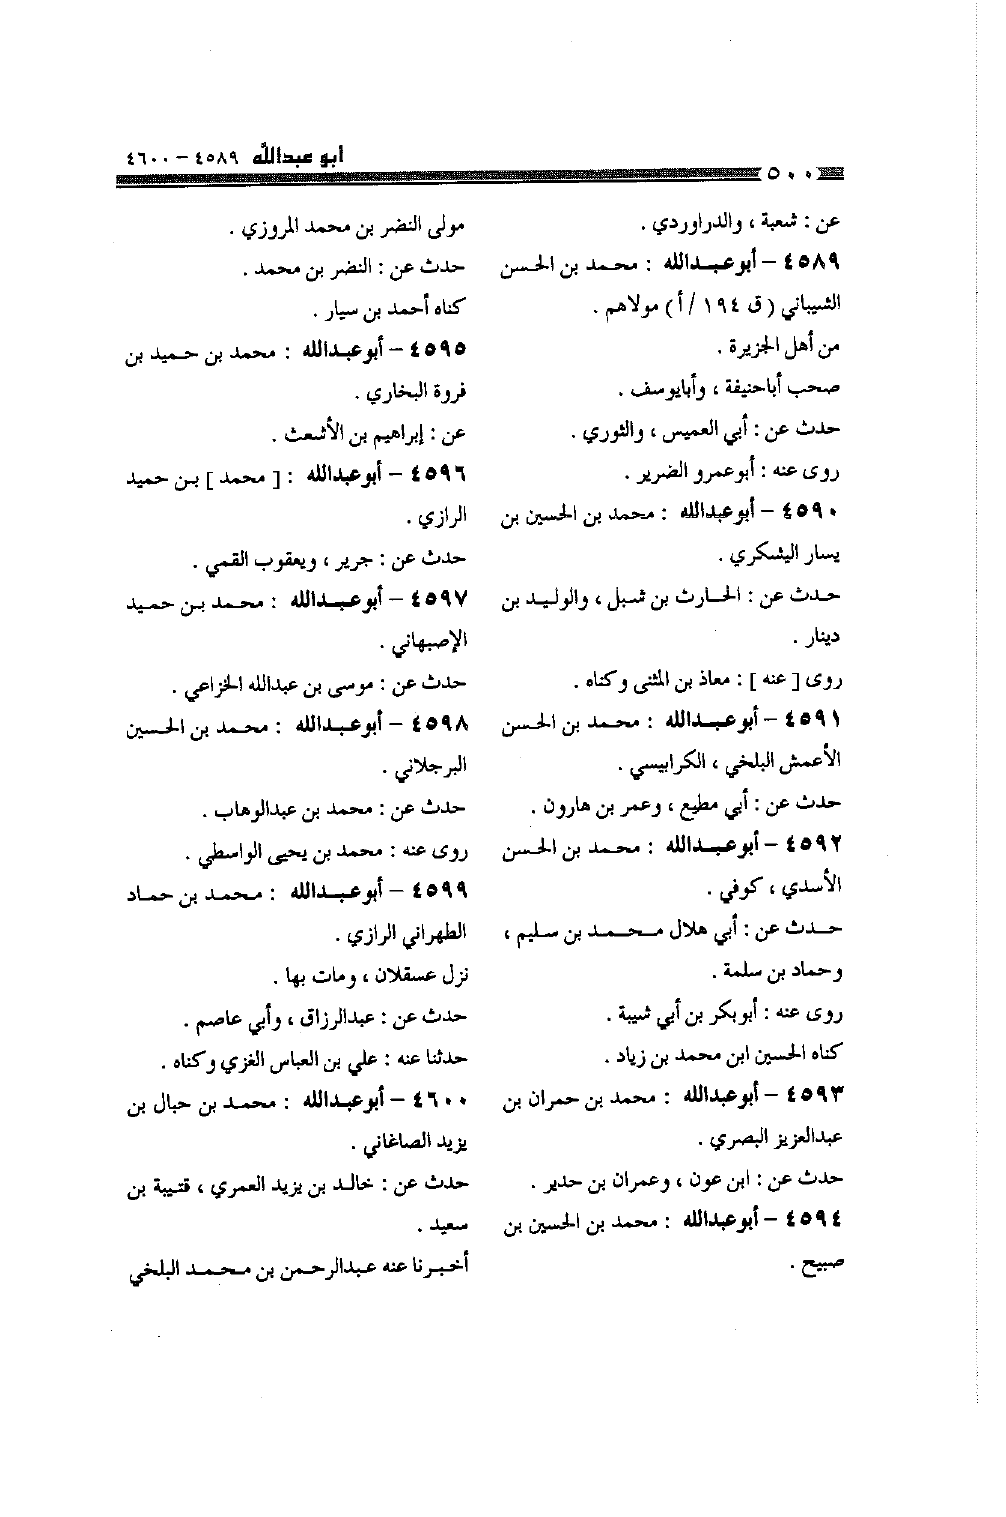 أبو عبدالله ٤٥٨٩ – ٤٦٠٠
٥٠٠
عن : شعبة ، والدراوردي .
٤٥٨٩ – أبو عبدالله : محمد بن الحسن
الشيباني ( ق ١٩٤ / أ ) مولاهم .
من أهل الجزيرة .
صحب أباحنيفة ، وأبايوسف .
حدث عن : أبي العميس ، والثوري .
روى عنه : أبو عمرو الضرير .
٤٥٩٠ – أبو عبدالله : محمد بن الحسين بن
يسار اليشكري .
حدث عن : الحارث بن شبل ، والوليد بن
دينار .
روى [ عنه ] : معاذ بن المثنى وكناه .
٤٥٩١ – أبو عبدالله : محمد بن الحسن
الأعمش البلخي ، الكرابيسي .
حدث عن : أبي مطيع ، وعمر بن هارون .
٤٥٩٢ – أبو عبدالله : محمد بن الحسن
الأسدي ، كوفي .
حدث عن : أبي هلال محمد بن سليم ،
وحماد بن سلمة .
روى عنه : أبو بكر بن أبي شيبة .
كناه الحسين ابن محمد بن زياد .
٤٥٩٣ – أبو عبدالله : محمد بن حمران بن
عبدالعزيز البصري .
حدث عن : ابن عون ، وعمران بن حدير .
٤٥٩٤ – أبو عبدالله : محمد بن الحسين بن
صبيح .
مولى النضر بن محمد المروزي .
حدث عن : النضر بن محمد .
كناه أحمد بن سيار .
٤٥٩٥ – أبو عبدالله : محمد بن حميد بن
فروة البخاري .
عن : إبراهيم بن الأشعث .
٤٥٩٦ – أبو عبدالله : [ محمد ] بن حميد
الرازي .
حدث عن : جرير ، ويعقوب القمي .
٤٥٩٧ – أبو عبدالله : محمد بن حميد
الإصبهاني .
حدث عن : موسى بن عبدالله الخزاعي .
٤٥٩٨ – أبو عبدالله : محمد بن الحسين
البرجلاني .
حدث عن : محمد بن عبدالوهاب .
روى عنه : محمد بن يحيى الواسطي .
٤٥٩٩ – أبو عبدالله : محمد بن حماد
الطهراني الرازي .
نزل عسقلان ، ومات بها .
حدث عن : عبدالرزاق ، وأبي عاصم .
حدثنا عنه : علي بن العباس الغزي وكناه .
٤٦٠٠ – أبو عبدالله : محمد بن حبال بن
يزيد الصاغاني .
حدث عن : خالد بن يزيد العمري ، قتيبة بن
سعيد .
أخبرنا عنه عبدالرحمن بن محمد البلخي